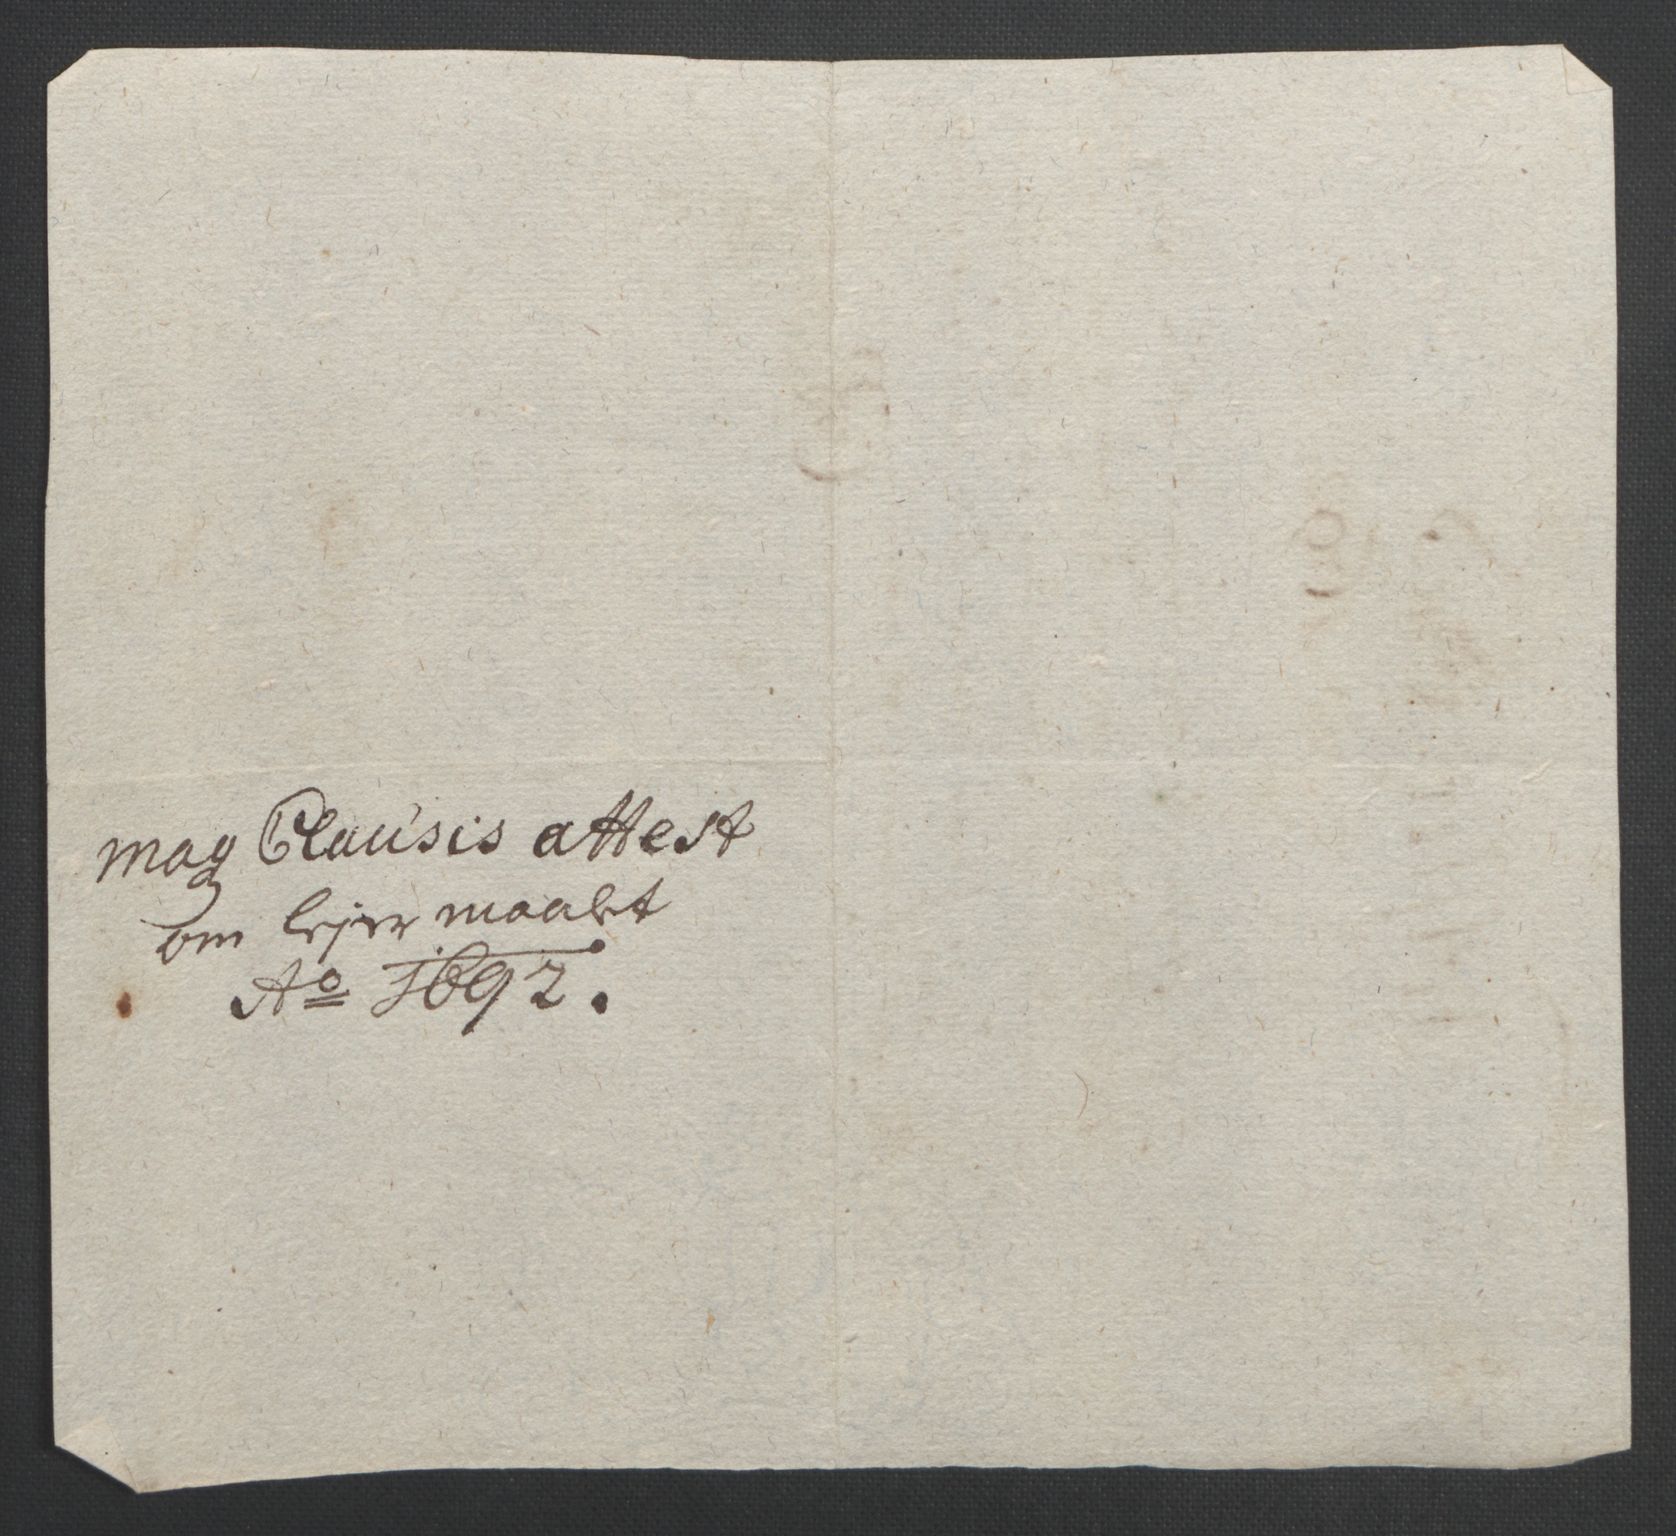 mag Clausis attest
om lejermaalet
Aº 1692.